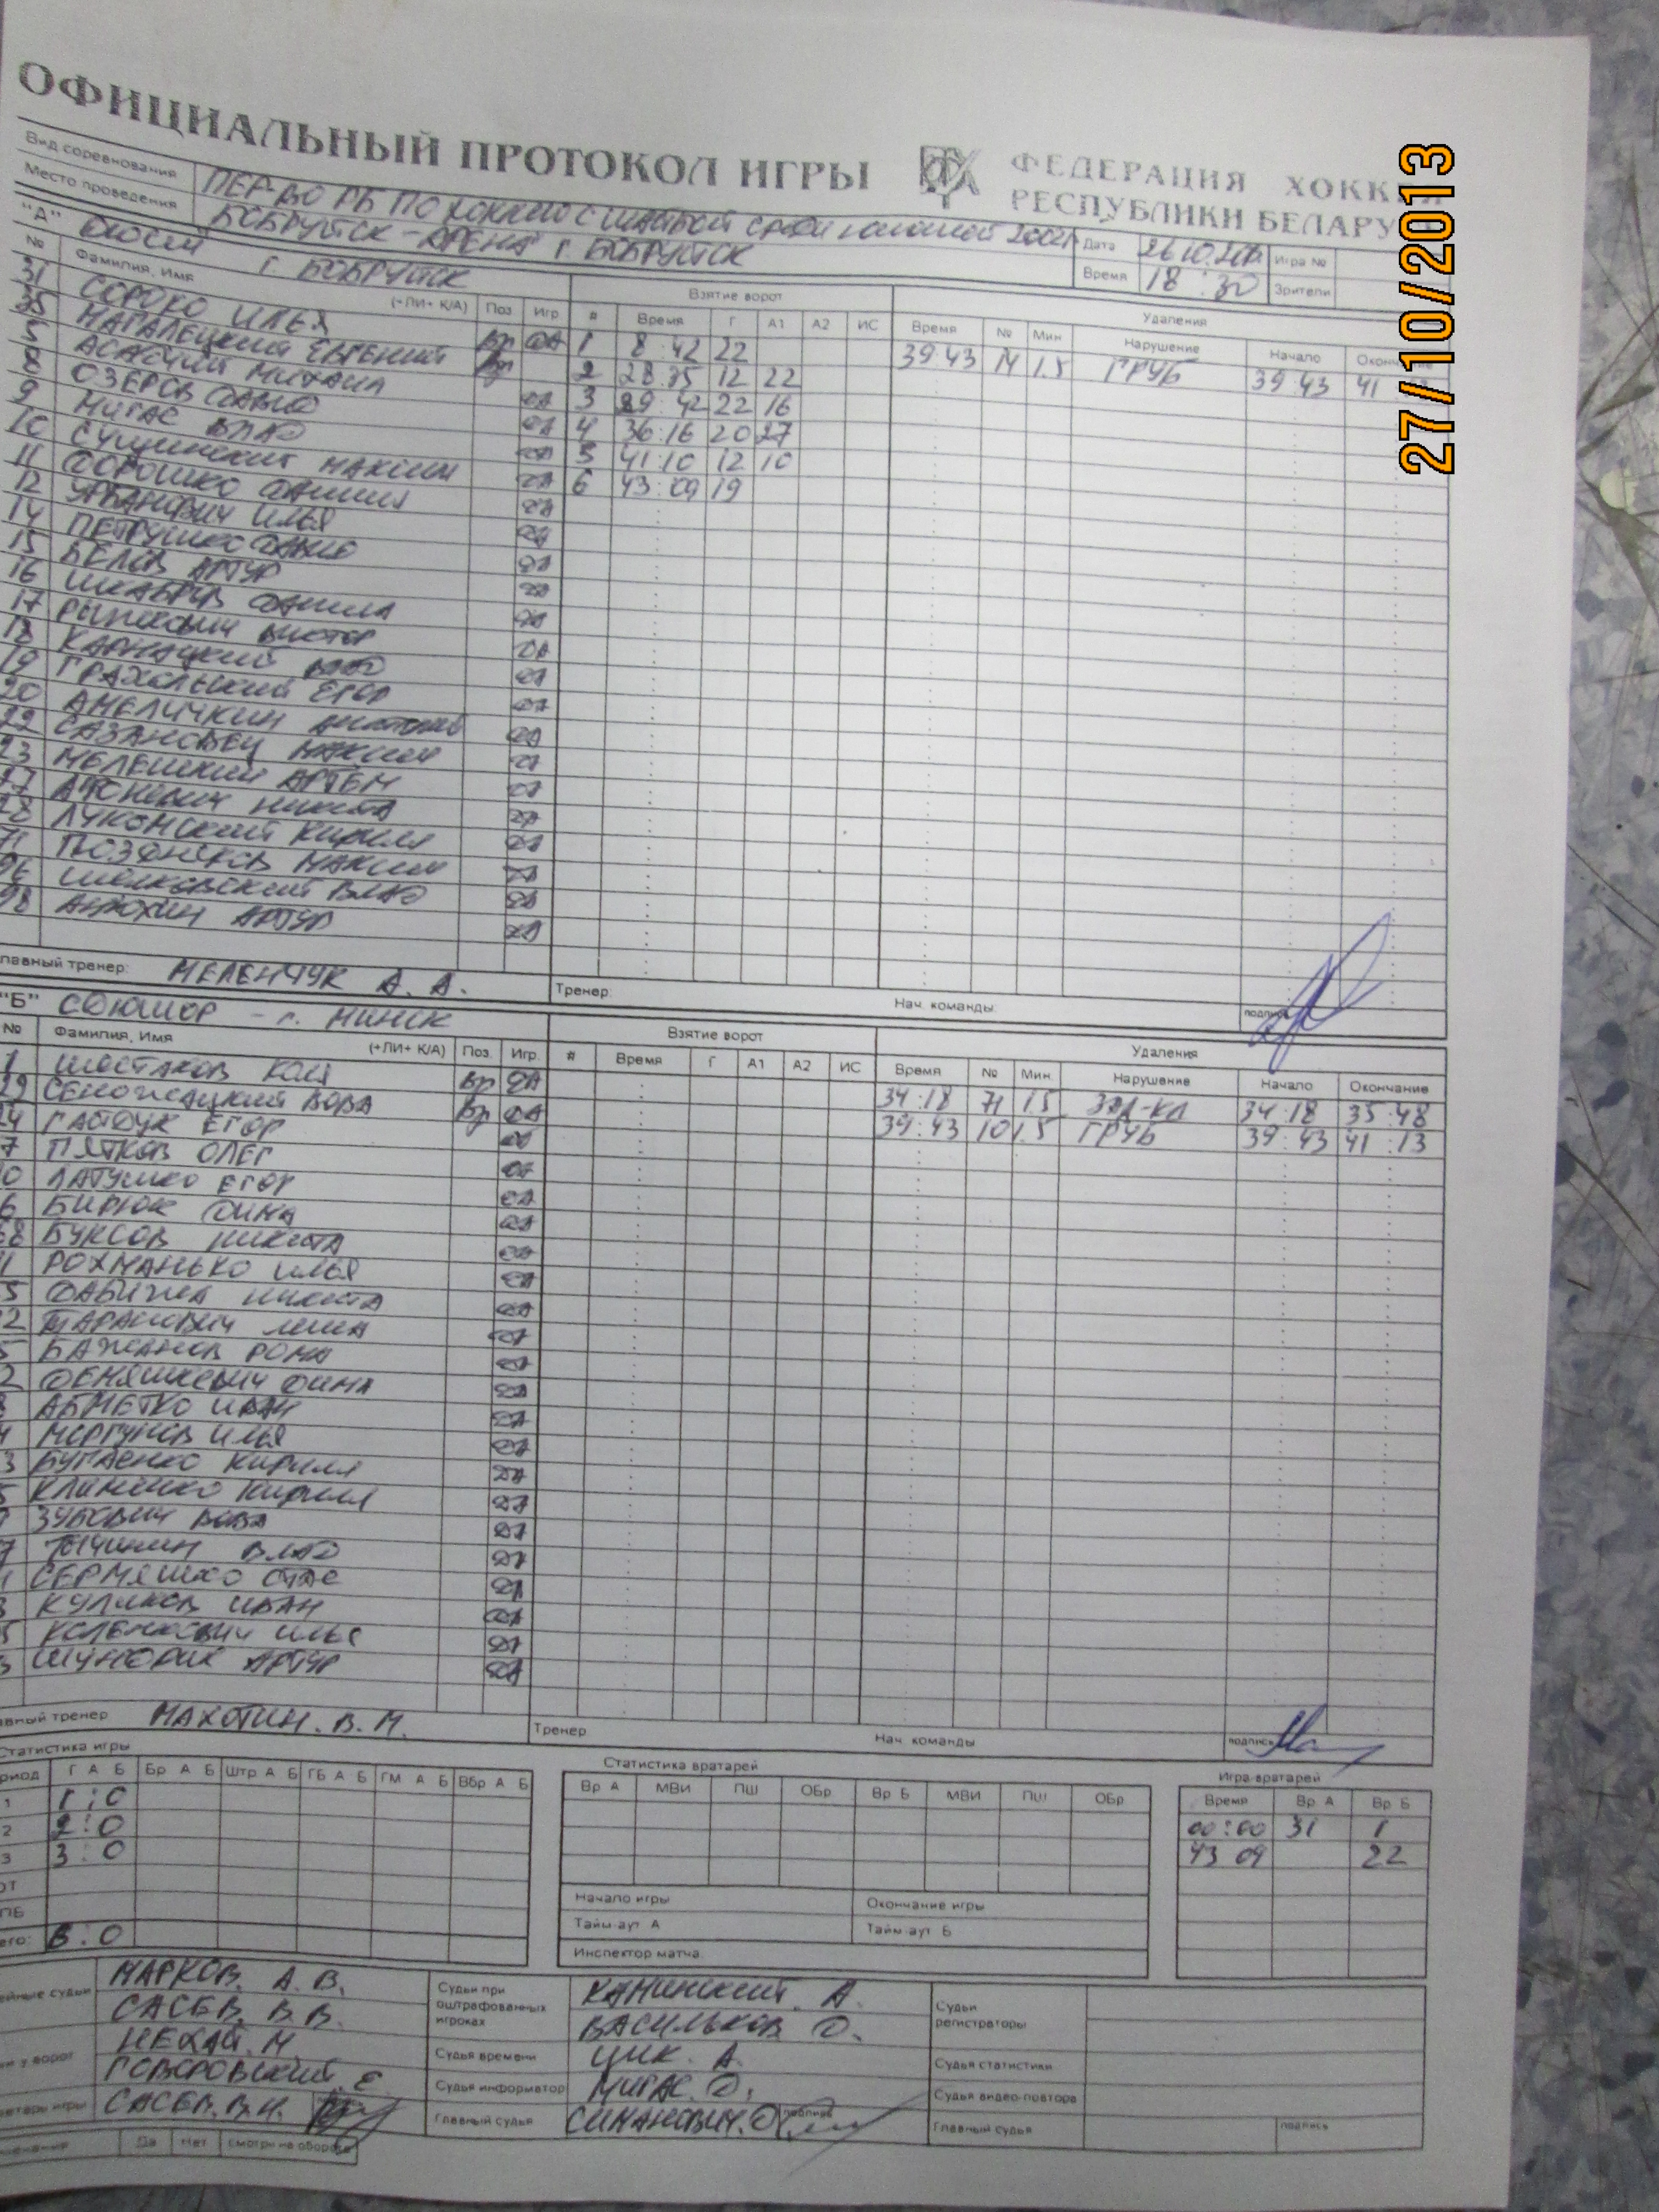 ОФИЦИАЛЬНЫЙ ПРОТОКОЛ ИГРЫ ФЕДЕРАЦИЯ ХОККЕЯ
РЕСПУБЛИКИ БЕЛАРУ
27/10/2013
Вид соревнования ПЕР-ВО РБ ПО ХОККЕЮ С ШАЙБОЙ СРЕДИ ЮНОШЕЙ 2002 Дата 26.10 Игра №
Место проведения БОБРУЙСК-АРЕНА г. БОБРУЙСК Время 18:30 Зрители
"А" г. БОБРУЙСК Взятие ворот Удаления
№ Фамилия, Имя (+ЛИ+ К/А) Поз Игр # Время Г А1 А2 ИС Время № Мин Нарушение Начало
31 СОРОКО ИЛЬЯ Вр ДА 1 8:42 22 39:43 14 1.5 ГРУБ 39:43 41
35 МАГАЛЕЦКИЙ ЕВГЕНИЙ Вр 2 28:35 12 22
5 МИХАИЛ ДА 3 29:42 22 16
8 ОЗЕРОВ ДАВИД ДА 4 36:16 20 27
9 МИГАС ВЛАД ДА 5 41:10 12 10
10 СУЩИНСКИЙ МАКСИМ ДА 6 43:09 19
11 ДОРОШКО ДАНИИЛ ДА
12 УРБАНОВИЧ ИЛЬЯ ДА
14 ПЕТРУШКО ДАВИД ДА
15 БЕЛОВ АРТУР ДА
16 ШКАБРОВ ДАНИЛА ДА
17 РЫНКЕВИЧ ВИКТОР ДА
18 КАРНАЦКИЙ ВЛАД ДА
19 ГРАХОЛЬСКИЙ ЕГОР ДА
20 АМЕЛИЧКИН ДА
22 САЗАНОВЕЦ МАКСИМ ДА
23 МЕЛЕШКИН АРТЕМ ДА
27 АФОНЕВИЧ НИКИТА ДА
28 ЛУКОМСКИЙ КИРИЛЛ ДА
71 ПОЗДНЯКОВ МАКСИМ ДА
96 ШОЛКОВСКИЙ ВЛАД ДА
98 АНДРОХИН АРТУР ДА
лавный тренер: МЕЛЕНЧУК А. А. Тренер: Нач. команды подпись
"Б" СДЮШОР - г. МИНСК Взятие ворот Удаления
№ Фамилия, Имя (+ЛИ+ К/А) Поз. Игр. # Время Г А1 А2 ИС Время № Мин. Нарушение Начало Окончание
1 ШОСТАКОВ КОЛЯ Вр ДА 34:18 71 1.5 ЗАД-КЛ 34:18 35:48
29 СЕНОЖАЦКИЙ ВОВА Вр ДА 39:43 10 1.5 ГРУБ 39:43 41:13
24 ГАЙДУК ЕГОР ДА
7 ПЯТКОВ ОЛЕГ ДА
0 ЛАТУШКО ЕГОР ДА
6 БИРЮК ДИМА ДА
68 БУКСОВ НИКИТА ДА
1 РОХМАНЬКО ИЛЬЯ ДА
5 НИКИТА ДА
2 ТАРАСОВИЧ ЛЕША ДА
5 БАЖАНОВ РОМА ДА
2 ДЕМЯШКЕВИЧ ДИМА ДА
АБМЕТКО ИВАН ДА
МОРГУНОВ ИЛЬЯ ДА
3 БУГАЕНКО КИРИЛЛ ДА
КЛИМЕНКО КИРИЛЛ ДА
ЗУБОВИЧ ВОВА ДА
7 ТЫЧИНИН ВЛАД ДА
СЕРМЯШКО СТАС ДА
КУЛИКОВ ИВАН ДА
КОЛЕНКОВИЧ ИЛЬЯ ДА
АРТУР ДА
авный тренер МАХОТИН. В. М. Тренер Нач. команды подпись
Статистика игры Статистика вратарей Игра вратарей
риод Г А Б Бр А Б Штр А Б ГБ А Б ГМ А Б Вбр А Б Вр А МВИ ПШ ОБр Вр Б МВИ ПШ ОБр Время Вр А Вр Б
1 1:0 00:00 31 1
2 2:0 43 09 22
3 3:0
ОТ
ПБ Начало игры Окончание игры
его: 6:0 Тайм-аут А Тайм-аут Б
Инспектор матча
ейные судьи МАРКОВ. А. В. Судьи при оштрафованных игроках КАМИНСКИЙ. А. Судьи регистраторы
САСЕВ. В. В. ВАСИЛЬКОВ Д.
и у ворот НЕХАЙ. М Судья времени ЦИК. А. Судья статистики
ГОВОРОВСКИЙ. Е Судья информатор МИГАС. Д. Судья видео-повтора
ретарь игры САСЕВ. В. Н. Главный судья СИМАНОВИЧ. О подпись Главный судья подпись
мечания Да Нет смотри на обороте